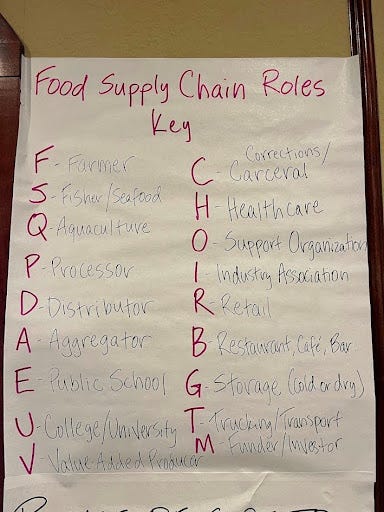 Food Supply Chain Roles
Key
F - Farmer
S - Fisher/Seafood
Q - Aquaculture
P - Processor
D - Distributor
A - Aggregator
E - Public School
U - College/University
V - Value Added Producer
C - Corrections/
Carceral
H - Healthcare
O - Support Organization
I - Industry Association
R - Retail
B - Restaurant, Café, Bar
G - Storage (cold or dry)
T - Trucking/Transport
M - Funder/Investor